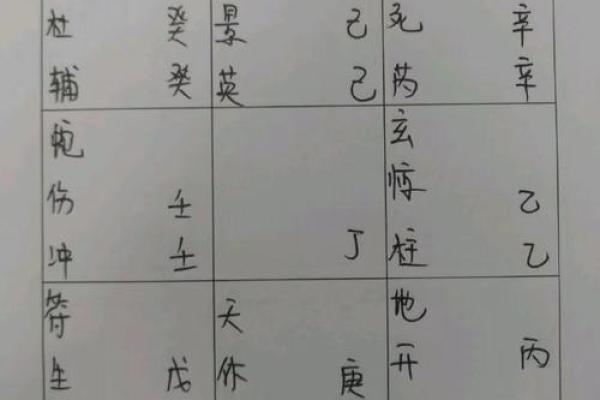 杜 癸
辅 癸
景 己
英 己
死 辛
芮 辛
伤 壬
冲 壬
丁
玄
惊 乙
柱 乙
符
生 戊
天
休 庚
地
开 丙